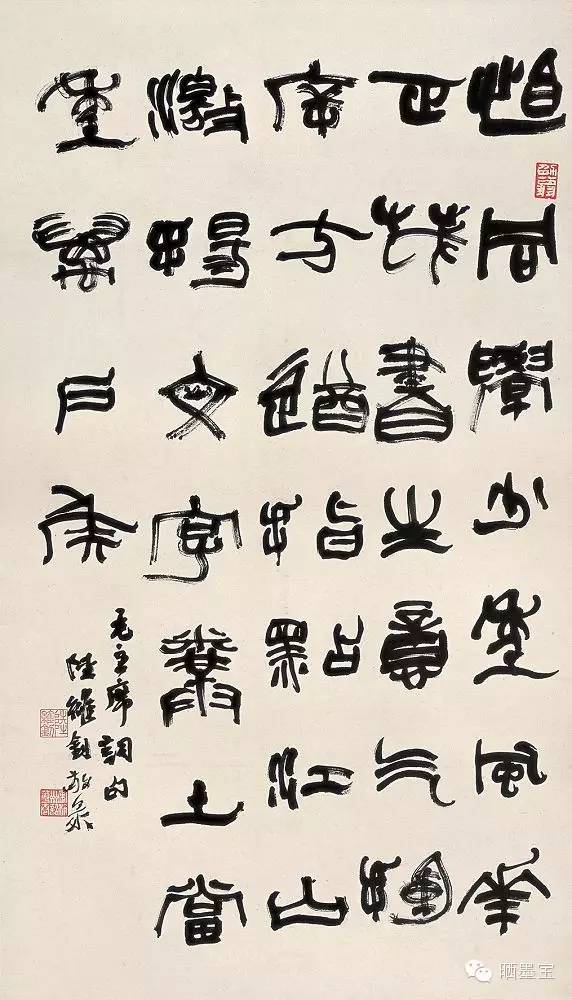 恰同學少年風華
正茂書生意氣揮
斥方遒指點江山
激揚文字糞土當
年萬戶侯
毛主席詞句
陸維釗敬
晒墨宝